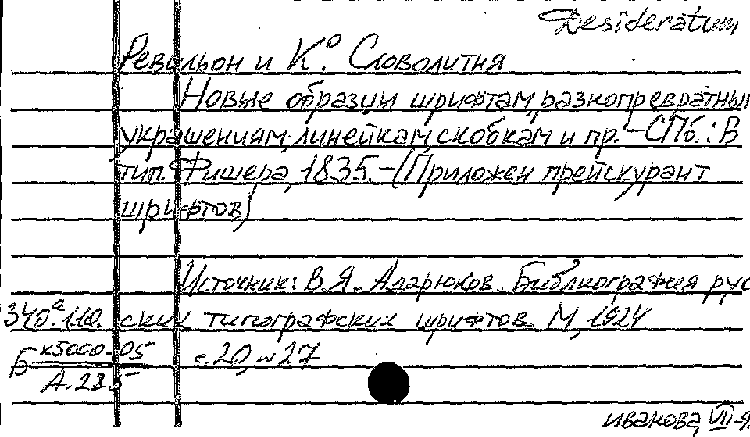 Desideratum
Ревильон и К°. Словолитня
Новые образцы шрифтам, разнопревратным
украшениям, линейкам, скобкам и пр. – СПб.: В
тип. Фишера, 1835. – (Приложен прейскурант
шрифтов)
Источник: В.Я. Адарюков. Библиография рус
ских типографских шрифтов М, 1924
с. 20, № 27
340
Б К5000-05
А. 235
Иванова, VII-Я